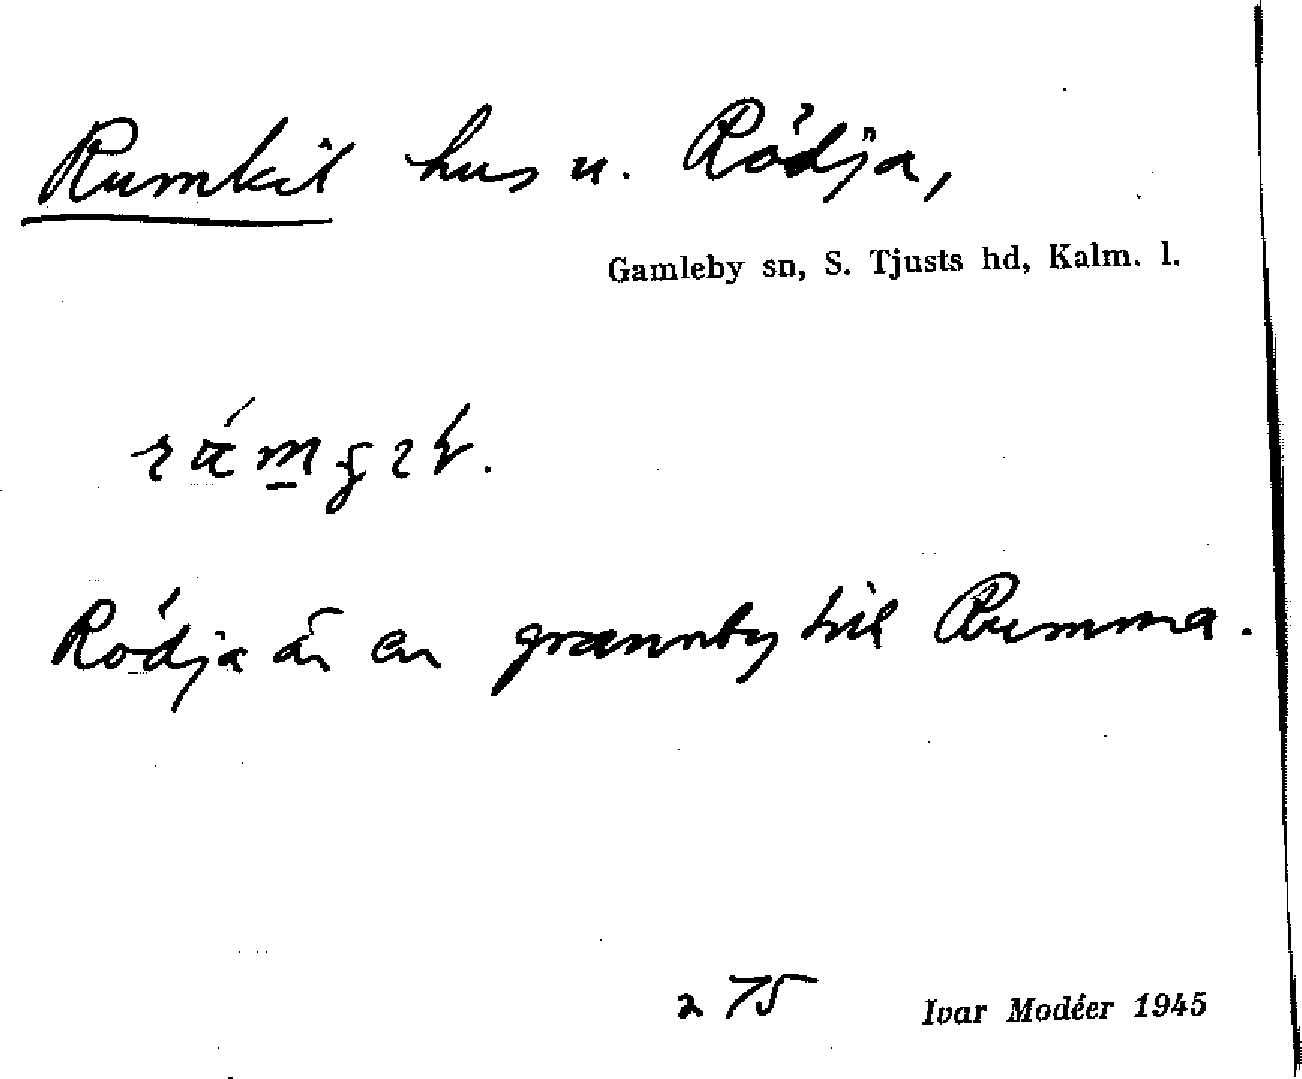 Rumkil hus u. Rödja,
Gamleby sn, S. Tjusts hd, Kalm. l.
Rödja är en grannby till Rumma.
a 75 Ivar Modéer 1945